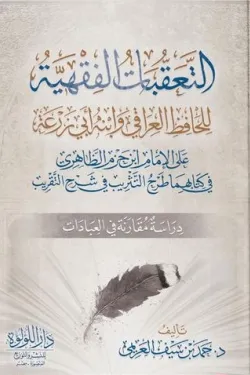 التعقبات الفقهية
للحافظ العراقي وابنه أبي زرعة
على الإمام ابن حزم الظاهري
في كتابهما طرح التثريب في شرح التقريب
دراسة مقارنة في العبادات
تأليف
د. حمد بن سيف العريمي
دار اللؤلؤة
للنشر والتوزيع